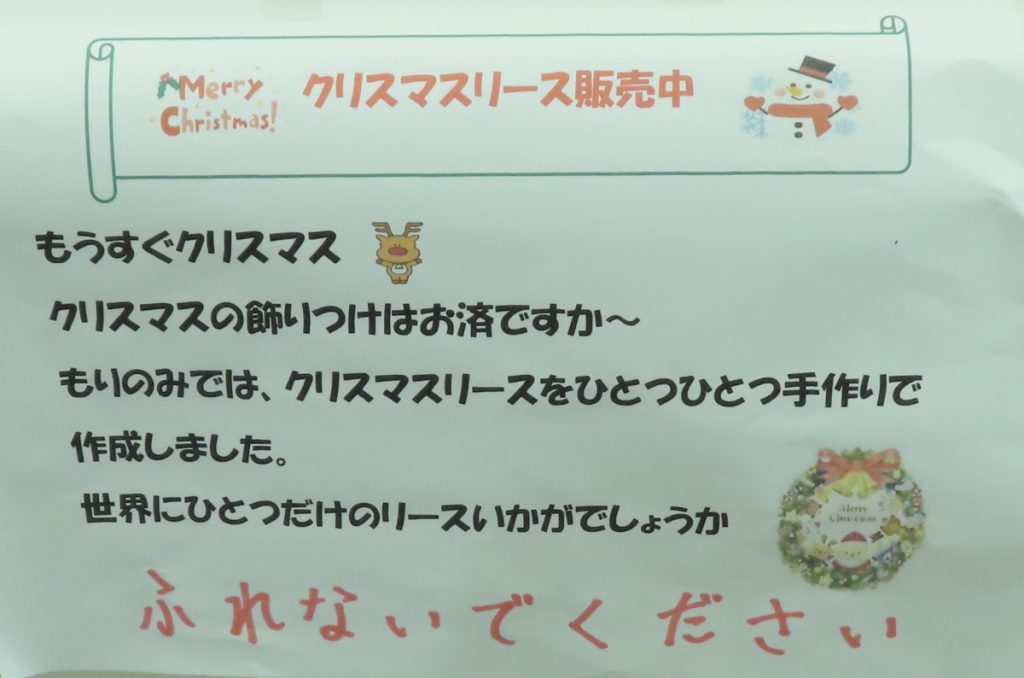 Merry
Christmas!
クリスマスリース販売中
もうすぐクリスマス
クリスマスの飾りつけはお済ですか～
もりのみでは、クリスマスリースをひとつひとつ手作りで
作成しました。
世界にひとつだけのリースいかがでしょうか
Merry
Christmas
ふれないでください